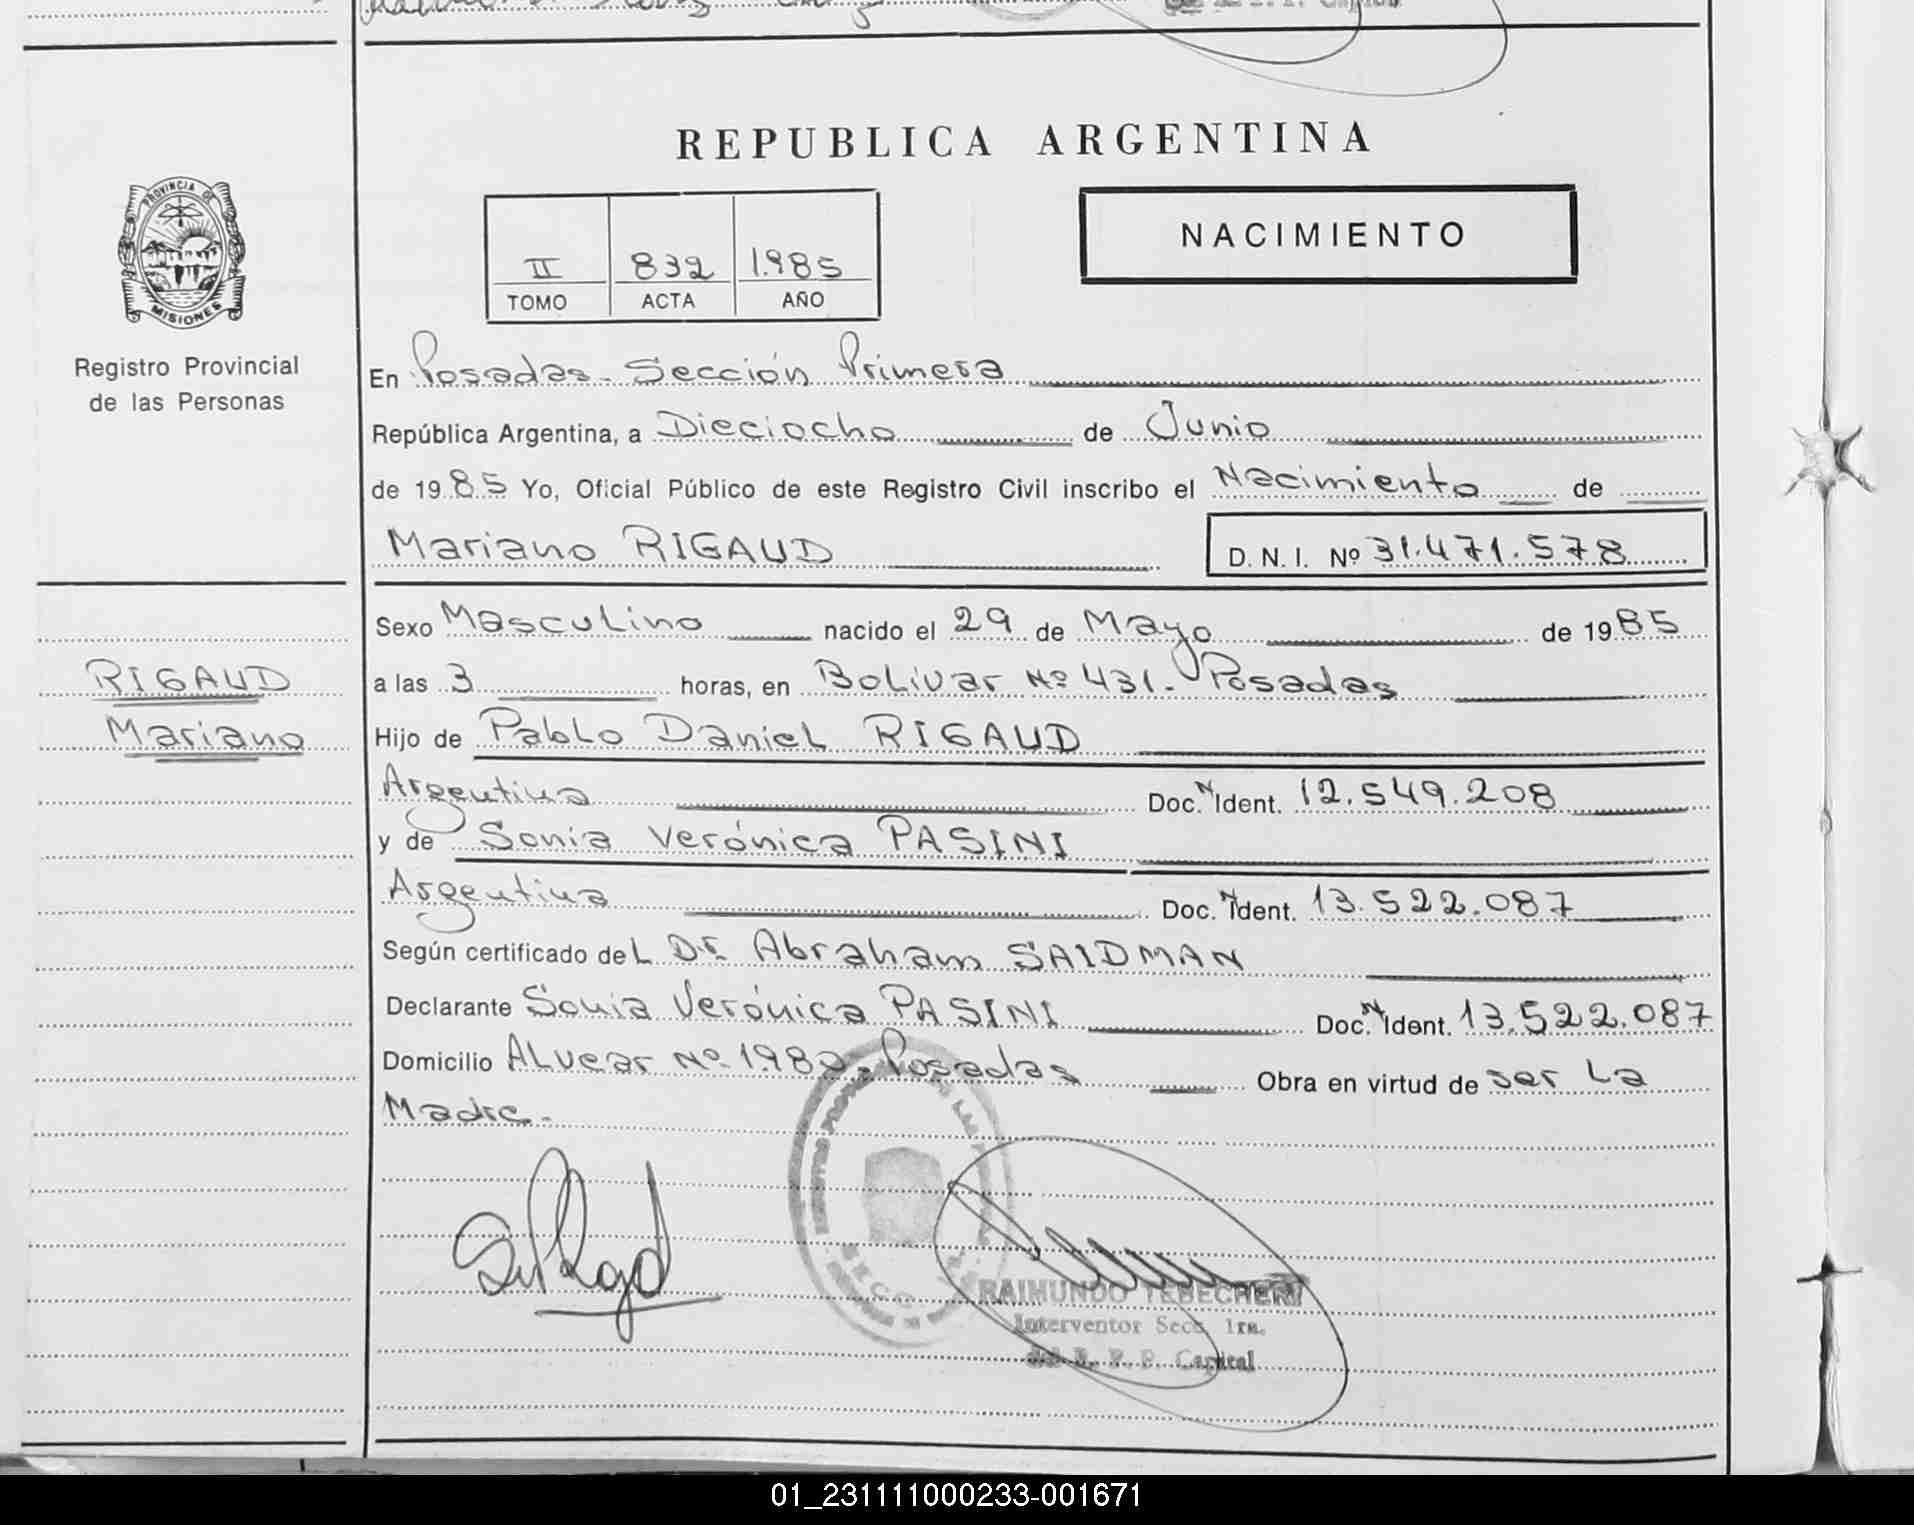 REPUBLICA ARGENTINA
PROVINCIA DE
MISIONES
Registro Provincial
de las Personas
II 832 1.985
TOMO ACTA AÑO
NACIMIENTO
En Posadas - Sección Primera
República Argentina, a Dieciocho de Junio
de 1985 Yo, Oficial Público de este Registro Civil inscribo el Nacimiento de
Mariano RIGAUD D. N. I. Nº 31.471.578
Sexo Masculino nacido el 29 de Mayo de 1985
RIGAUD
Mariano
a las 3 horas, en Bolivar Nº 431 - Posadas
Hijo de Pablo Daniel RIGAUD
Argentina Doc. N Ident. 12.549.208
y de Sonia Verónica PASINI
Argentina Doc. N Ident. 13.522.087
Según certificado del Dr. Abraham SAIDMAN
Declarante Sonia Verónica PASINI Doc. N Ident. 13.522.087
Domicilio Alvear Nº 1.980 - Posadas Obra en virtud de ser La
Madre.-
RAIMUNDO TEBECHERI
Interventor Secc. 1ra.
del R. P. P. Capital
01_231111000233-001671